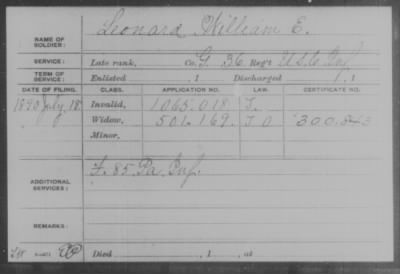 NAME OF SOLDIER: Leonard, William E.
SERVICE: Late rank, Co. G, 36 Reg't U.S.C. Inf.
TERM OF SERVICE: Enlisted , 1 Discharged , 1
DATE OF FILING. CLASS. APPLICATION NO. LAW. CERTIFICATE NO.
1890 July, 18. Invalid, 1065.018 J.
Widow, 501.169. J O 300.
Minor,
ADDITIONAL SERVICES: F. 85 Pa. Inf.
REMARKS:
Died , 1 , at